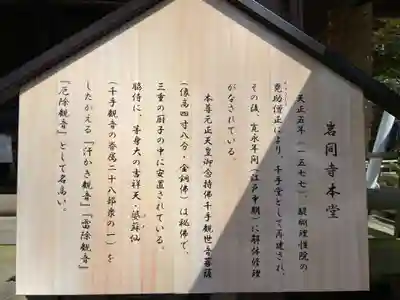 岩間寺本堂
天正五年(一五七七)、醍醐理性院の
堯助僧正により、千手堂として再建され、
その後、寛永年間(江戸中期)に解体修理
がなされている。
本尊元正天皇御念持佛千手觀世音菩薩
(像高四寸八分・金銅佛)は秘佛で、
三重の厨子の中に安置されている。
脇侍に、等身大の吉祥天・婆蘇仙
(千手観音の眷属二十八部衆の一)を
したがえる『汗かき観音』『雷除観音』
『厄除観音』として名高い。